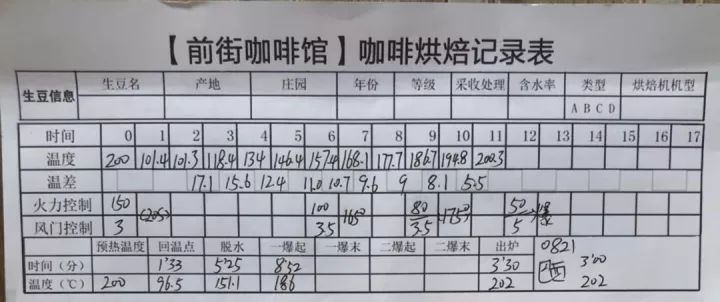 【前街咖啡馆】咖啡烘焙记录表
生豆信息 生豆名 产地 庄园 年份 等级 采收处理 含水率 类型 烘焙机机型
A B C D
时间 0 1 2 3 4 5 6 7 8 9 10 11 12 13 14 15 16 17
温度 200 101.4 101.3 118.4 134 146.4 157.4 168.1 177.7 186.7 194.8 200.3
温差 17.1 15.6 12.4 11.0 10.7 9.6 9 8.1 5.5
火力控制 150 100 80 50
风门控制 3 3.5 3.5 5
预热温度 回温点 脱水 一爆起 一爆末 二爆起 二爆末 出炉 0821
时间（分） 1'33 5'25 8'52 3'30 3'00
温度（℃） 200 96.5 151.1 186 202 202